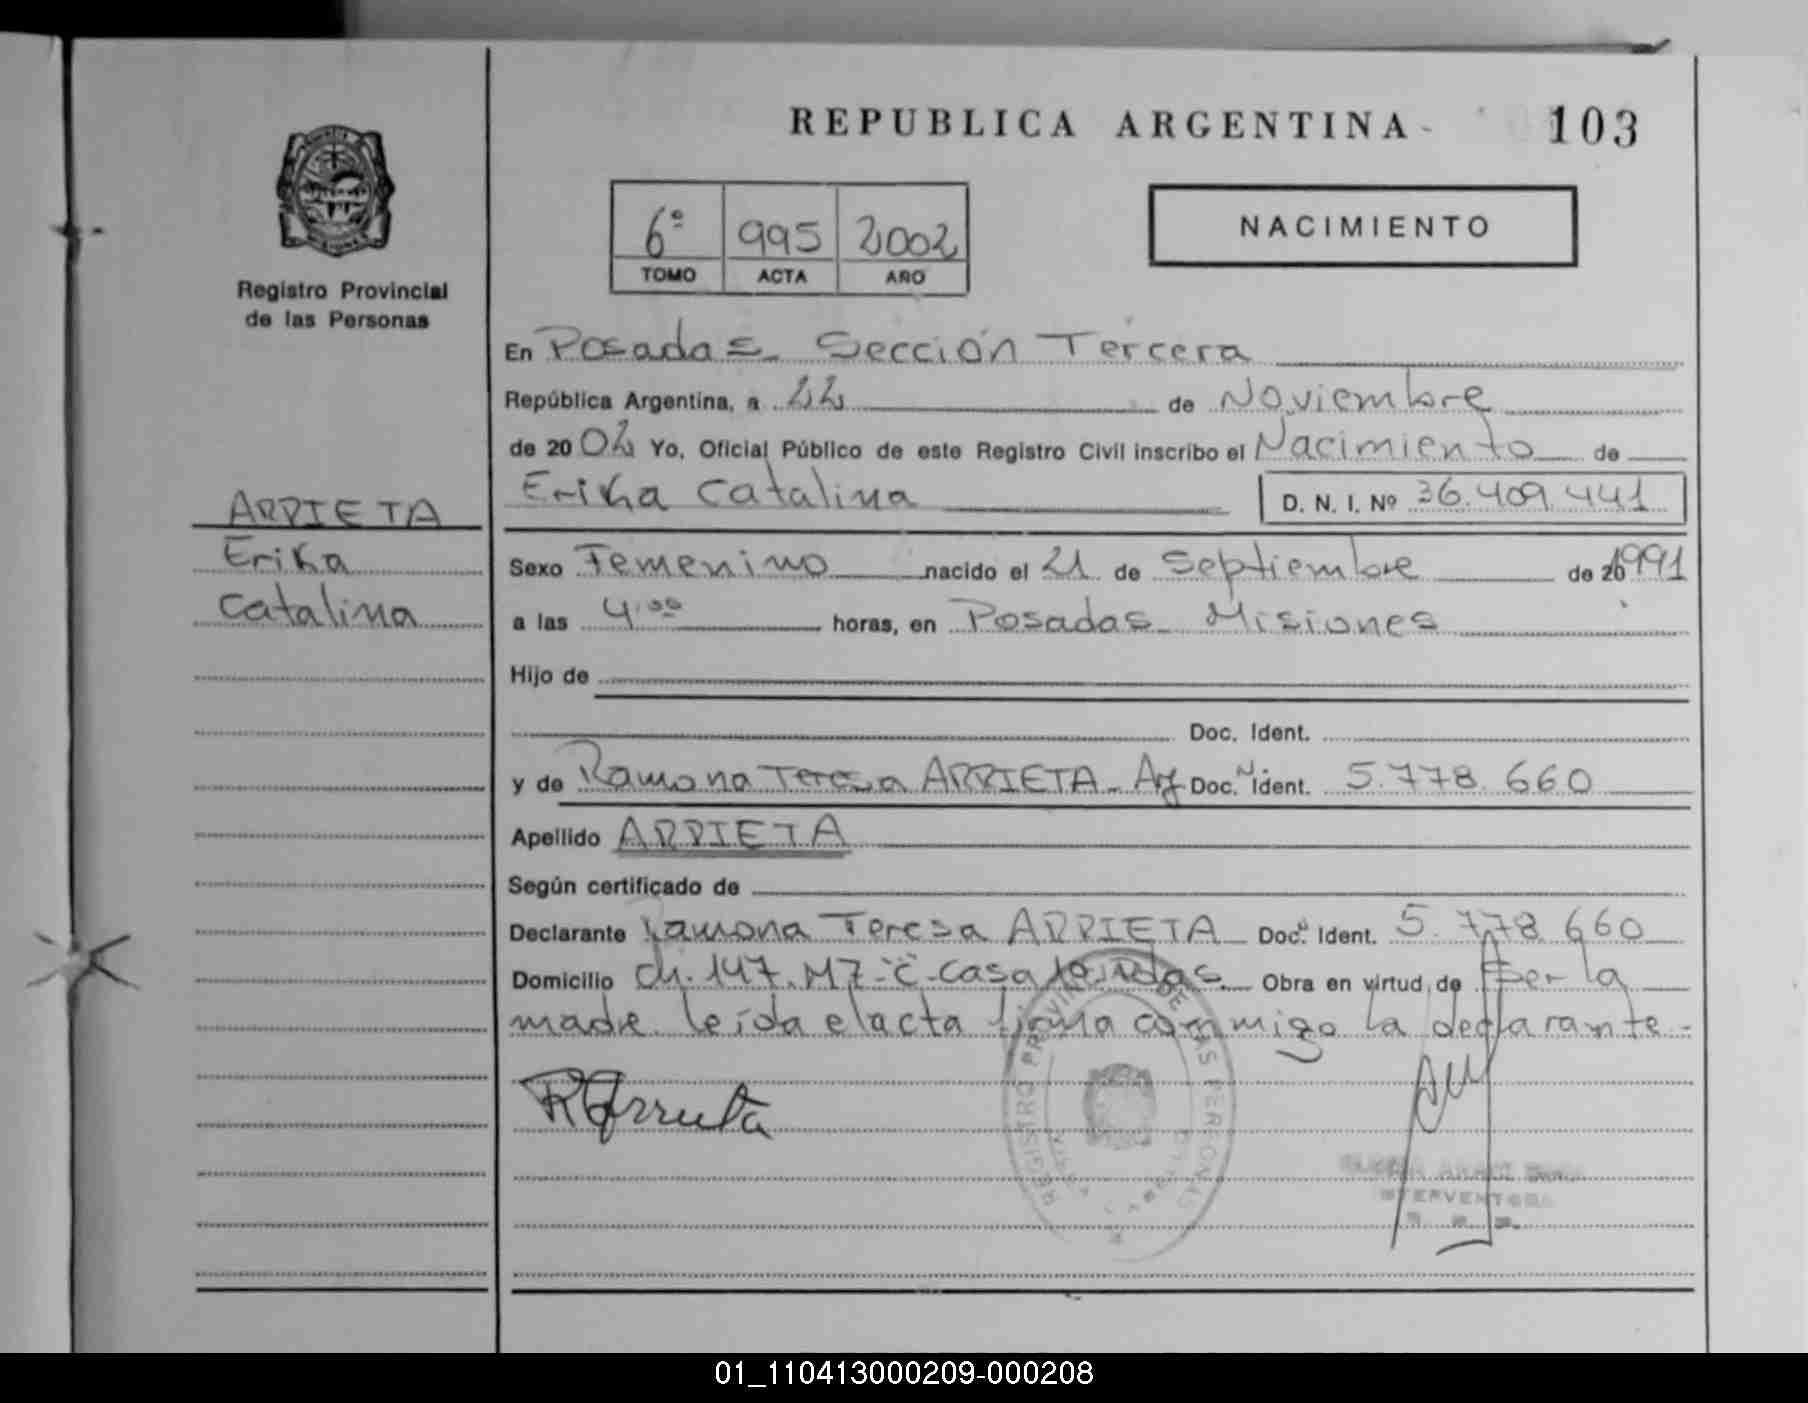 REPUBLICA ARGENTINA
103
6º 995 2002
TOMO ACTA AÑO
NACIMIENTO
Registro Provincial
de las Personas
En Posadas - Sección Tercera
República Argentina, a 22 de Noviembre
de 2002 Yo, Oficial Público de este Registro Civil inscribo el Nacimiento de
Erika Catalina D. N. I. Nº 36.409.441
ARRIETA
Erika
Catalina
Sexo Femenino nacido el 21 de Septiembre de 1991
a las 4.00 horas, en Posadas - Misiones
Hijo de
Doc. Ident.
y de Ramona Teresa ARRIETA - Arg Doc. Ident. 5.778.660
Apellido ARRIETA
Según certificado de
Declarante Ramona Teresa ARRIETA Doc. Ident. 5.778.660
Domicilio Ch. 147. M7 "C" Casa Obra en virtud de Ser la
madre leída el acta firma conmigo la declarante -
REGISTRO PROVINCIAL DE LAS PERSONAS
INTERVENTORA
01_110413000209-000208